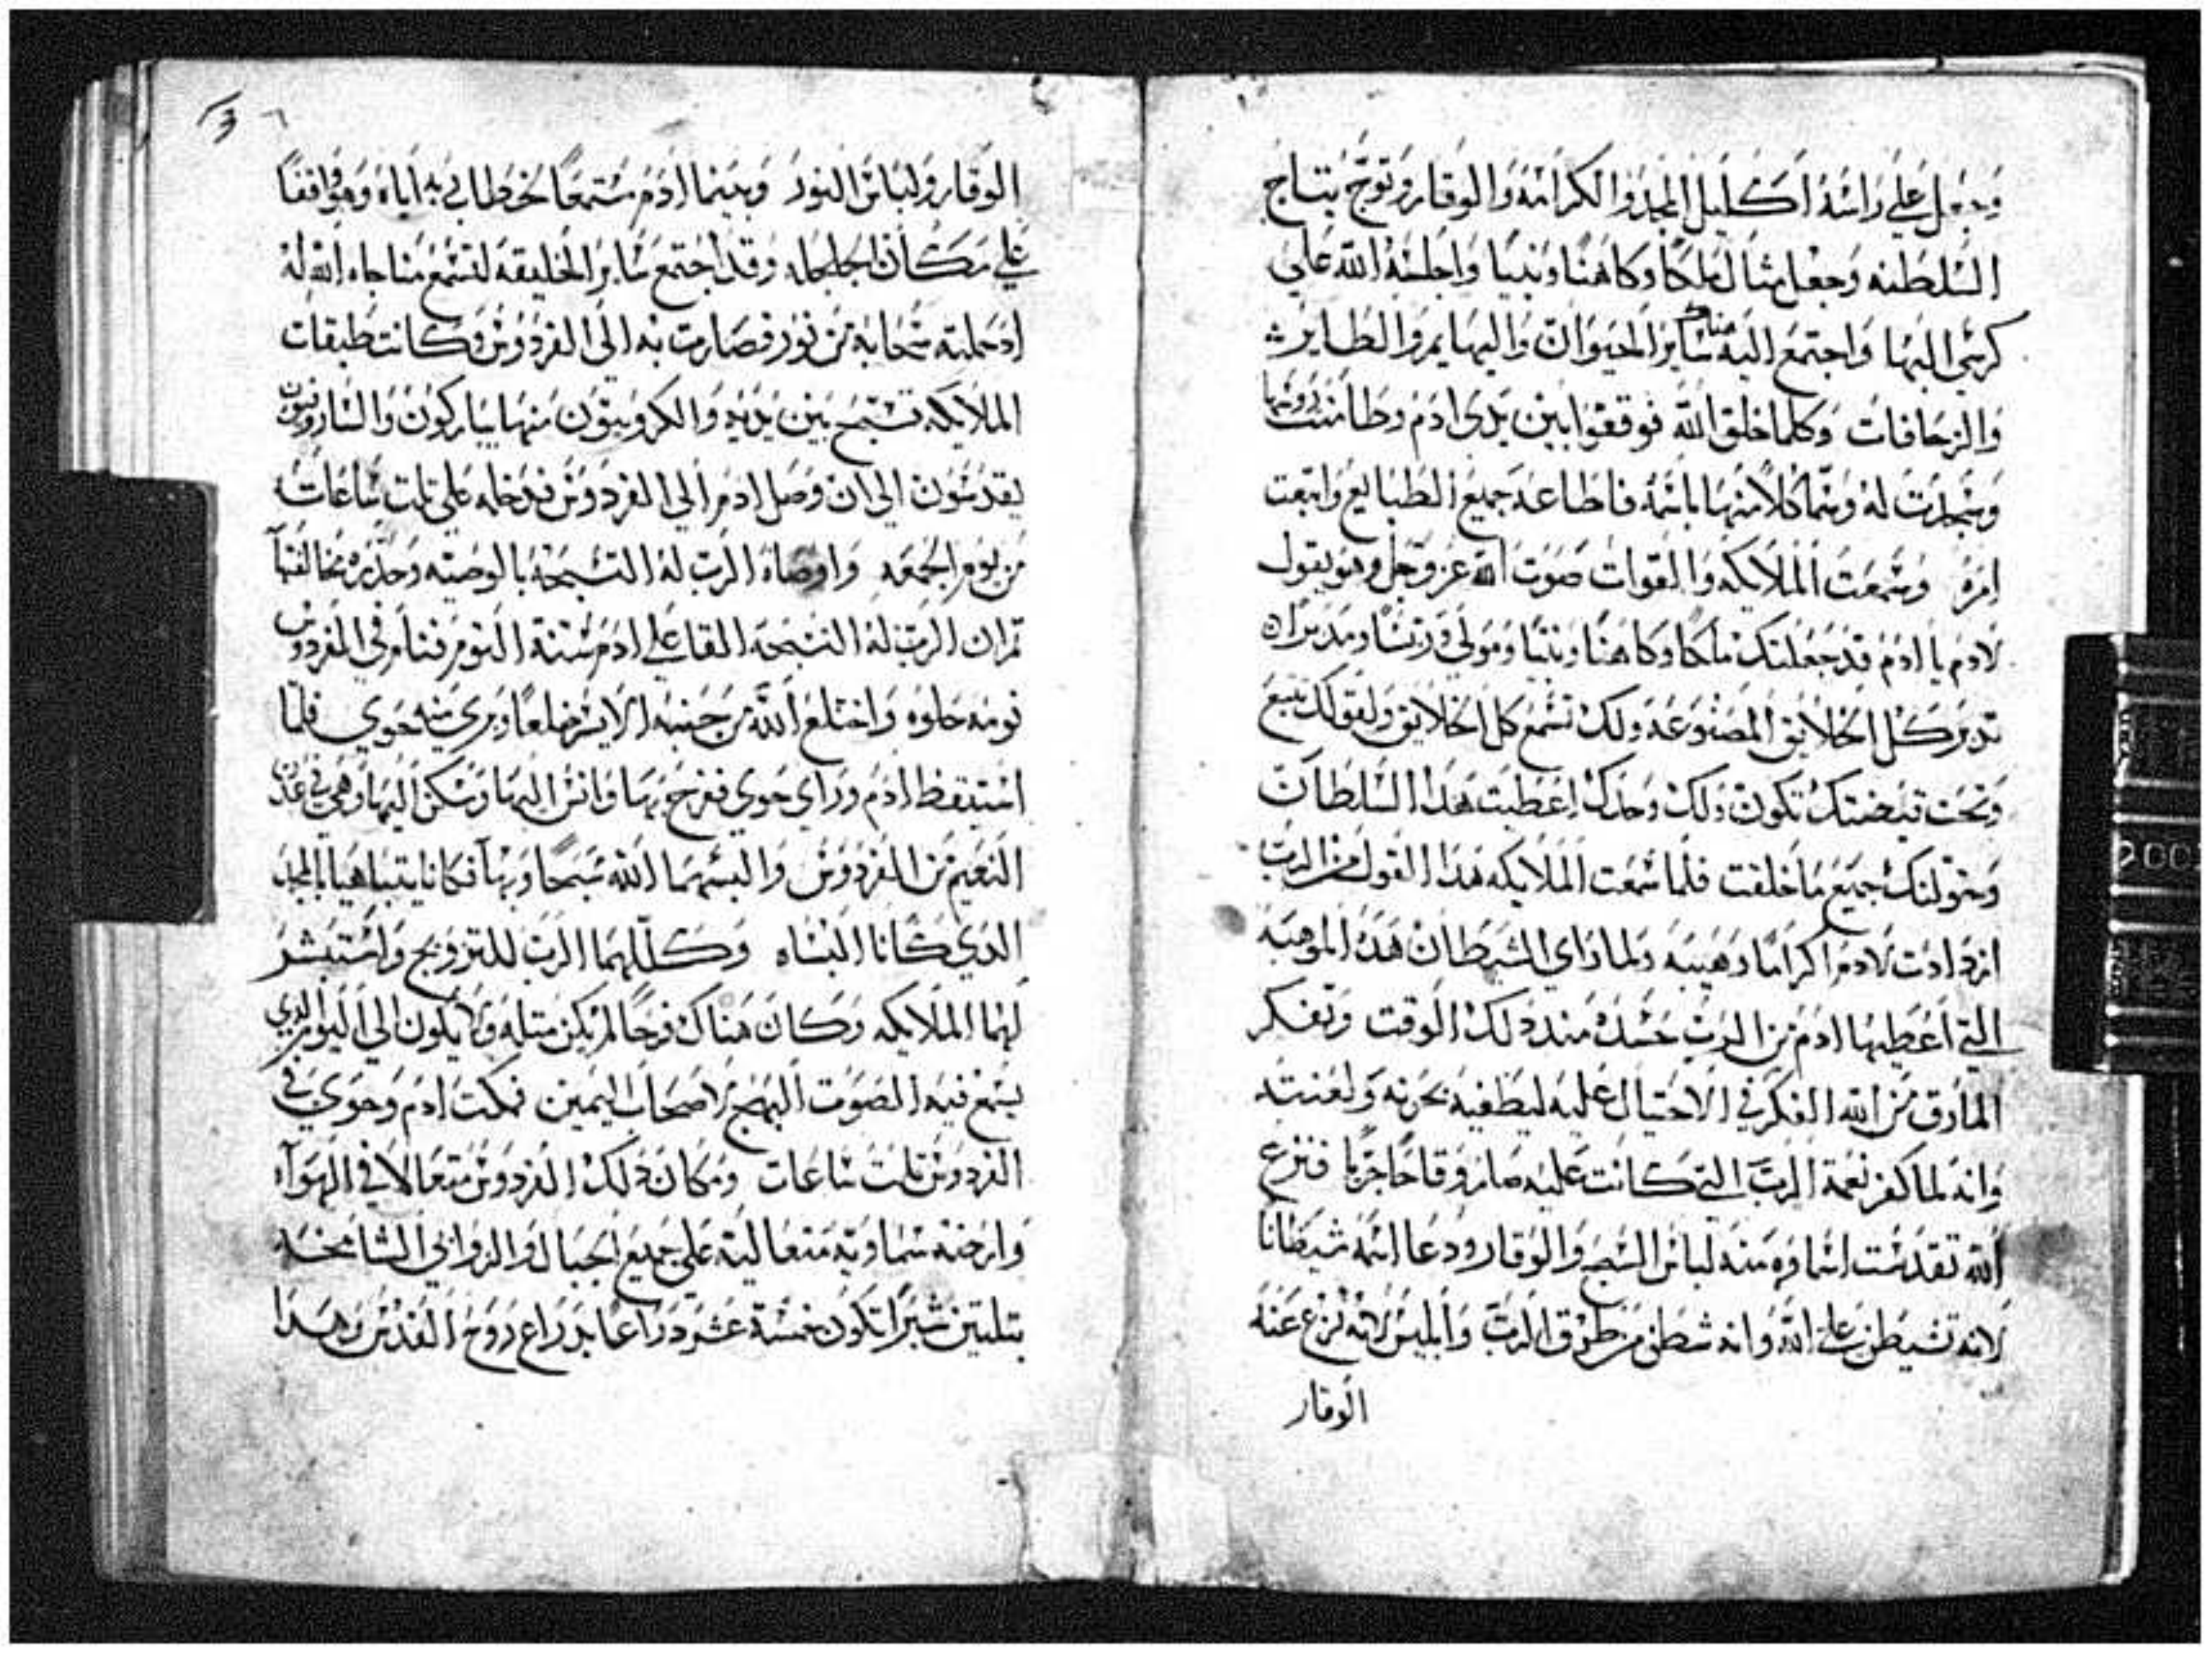 وجعل علي راسه اكليل المجد والكرامه والوقار وتوج بتاج
السلطنه وجعل مثال ملكا وكاهنا ونبيا واجلسه الله علي
كرسي البها واجتمع اليه هناك ساير الحيوان والبهايم والطاير
والزحافات وكلما خلق الله فوقفوا بين يدى ادم وطامنت روسها
وسجدت له وسما كلا منها باسمه فاطاعه جميع الطبايع واتبعت
امره وسمعت الملايكه والقوات صوت الله عز وجل وهو يقول
لادم يا ادم قد جعلتك ملكا وكاهنا ونبيا ومولي وريسا ومدبرا
تدبر كل الخلايق المصنوعه ولك تسمع كل الخلايق ولقولك تتبع
وتحت قبضتك تكون ولك وحدك اعطيت هذا السلطان
وخولتك جميع ما خلقت فلما سمعت الملايكه هذا القول من الرب
ازدادت لادم اكراما وهيبه ولما راي الشيطان هذه الموهبه
التي اعطيها ادم من الرب حسده مند دلك الوقت وتفكر
المارق من الله الفكر في الاحتيال عليه ليطغيه بجرته ولعنته
وانه لما كفر نعمة الرب التي كانت عليه صار وقاحا جريا فنزع
الله تقدست اسماوه منه لباس السبح والوقار ودعا اسمه شيطانا
لانه تشيطن علي الله وانه شطن من طرق الرب وابليس لانه نزع عنه
الوقار
الوقار ولباس النور وبينما ادم مستمعا لخطاب ربه اياه وهو واقفا
علي مكان الجلجله وقد اجتمع ساير الخليقه لتسمع مناجاه الله له
اد حملته سحابة من نور فصارت به الي الفردوس وكانت طبقات
الملايكه تسبح بين يديه والكروبيون منها يباركون والساروفيون
يقدسون الي ان وصل ادم الي الفردوس فدخله علي تلت ساعات
من يوم الجمعه واوصاه الرب له التسبحة بالوصيه وحذره مخالفتها
تم ان الرب له التسبحه القا علي ادم سنة النوم فنام في الفردوس
نومه حلوه واختلع الله من جنبه الايسر ضلعا وبرى منه حوي فلما
استيقظ ادم وراي حوي ففرح بها وانس اليها وسكن اليها وهي في عدن
النعيم من الفردوس والبسهما الله سبحا وبها فكانا يتباهيا بالمجد
الدي كانا البساه وكللهما الرب للتزويج واستبشر
لهما الملايكه وكان هناك فرحا لم يكن متله ولا يكون الي اليوم الدي
يسمع فيه الصوت البهج لاصحاب اليمين فمكت ادم وحوي في
الفردوس تلت ساعات ومكان دلك الفردوس متعالا في الهوآ
وارضه سماويه متعالية علي جميع الجبال والروابي الشامخه
بتلتين شبرا تكون خمسة عشر دراعا بدراع روح القدس وهدا